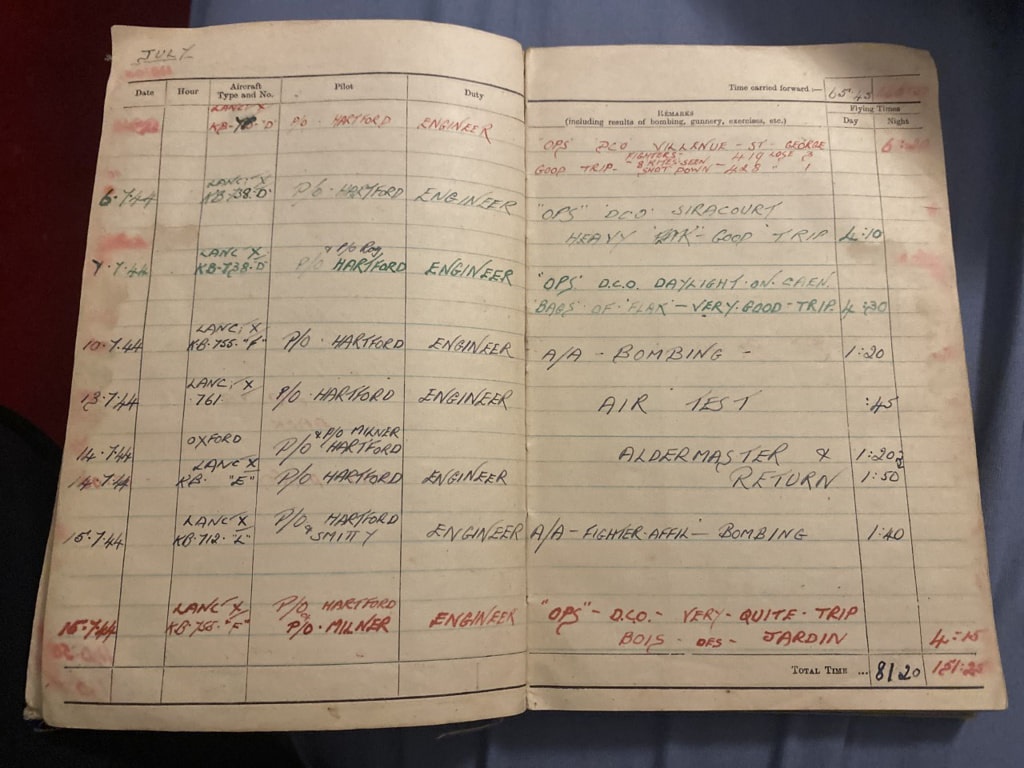 JULY
Date Hour Aircraft Type and No. Pilot Duty
Time carried forward :— 65 45
Flying Times
REMARKS
(including results of bombing, gunnery, exercises, etc.) Day Night
LANC X
KB- "D" P/O · HARTFORD ENGINEER
"OPS" D.C.O. VILLENUE - ST - GEORGE
FIGHTERS - 419 LOSE 3
GOOD TRIP - 8 KITES SEEN SHOT DOWN - 428 " 1
6·7·44 LANC· X KB·738·D· P/O · HARTFORD ENGINEER
"OPS" D.C.O. SIRACOURT
HEAVY - GOOD TRIP 4:10
7·7·44 LANC X KB-738·"D" P/O HARTFORD & P/O ENGINEER
"OPS" D.C.O. DAYLIGHT·ON·CAEN,
"BAGS · OF · "FLAK" — VERY·GOOD·TRIP 4:30
10·7·44 LANC· X KB·755· "F" P/O · HARTFORD ENGINEER A/A - BOMBING - 1:20
13·7·44 LANC· X 761 P/O · HARTFORD ENGINEER AIR TEST :45
14·7·44 OXFORD P/O HARTFORD & P/O MILNER ALDERMASTER & 1:20
14·7·44 LANC X KB· "E" P/O · HARTFORD ENGINEER RETURN 1:50
15·7·44 LANC X KB·712·"L" P/O HARTFORD & SMITTY ENGINEER A/A - FIGHTER·AFFIL — BOMBING 1:40
LANC X P/O HARTFORD
15·7·44 KB·755·"F" P/O· MILNER ENGINEER
"OPS" - D.C.O. - VERY - QUITE - TRIP
BOIS - DES - JARDIN 4:15
TOTAL TIME ... 81 20 151:25